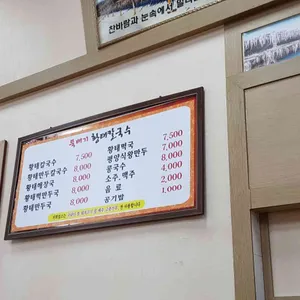 찬바람과 눈속에서 말리
뚝배기 황태칼국수
황태칼국수 7,500
황태만두칼국수 8,000
황태해장국 8,000
황태떡만두국 8,000
황태만두국 8,000
황태떡국 7,500
평양식왕만두 7,000
콩국수 8,000
소주.맥주 4,000
음료 2,000
공기밥 1,000